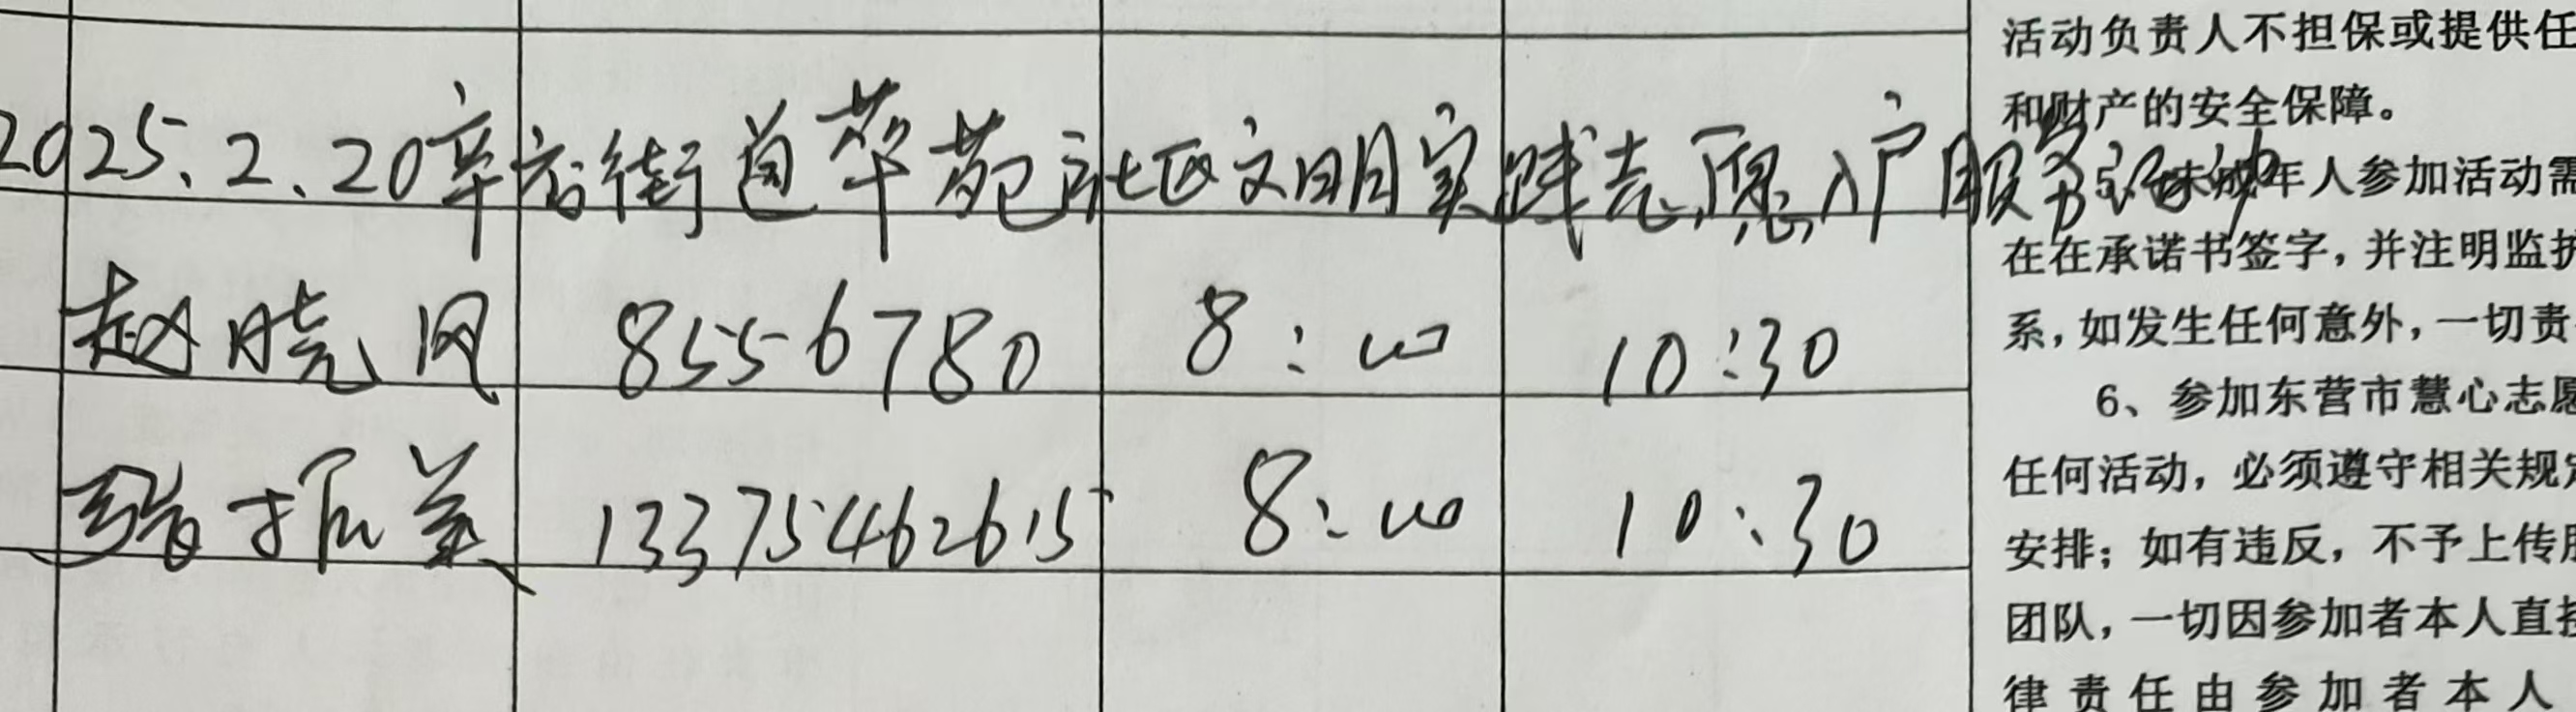 2025.2.20辛店街道萃苑社区文明实践志愿入户服务活动
赵晓风 8556780 8:00 10:30
振美 13375462615 8:00 10:30
活动负责人不担保或提供任
和财产的安全保障。
5、未成年人参加活动需
在在承诺书签字，并注明监护
系，如发生任何意外，一切责
6、参加东营市慧心志愿
任何活动，必须遵守相关规定
安排；如有违反，不予上传服
团队，一切因参加者本人直接
律责任由参加者本人